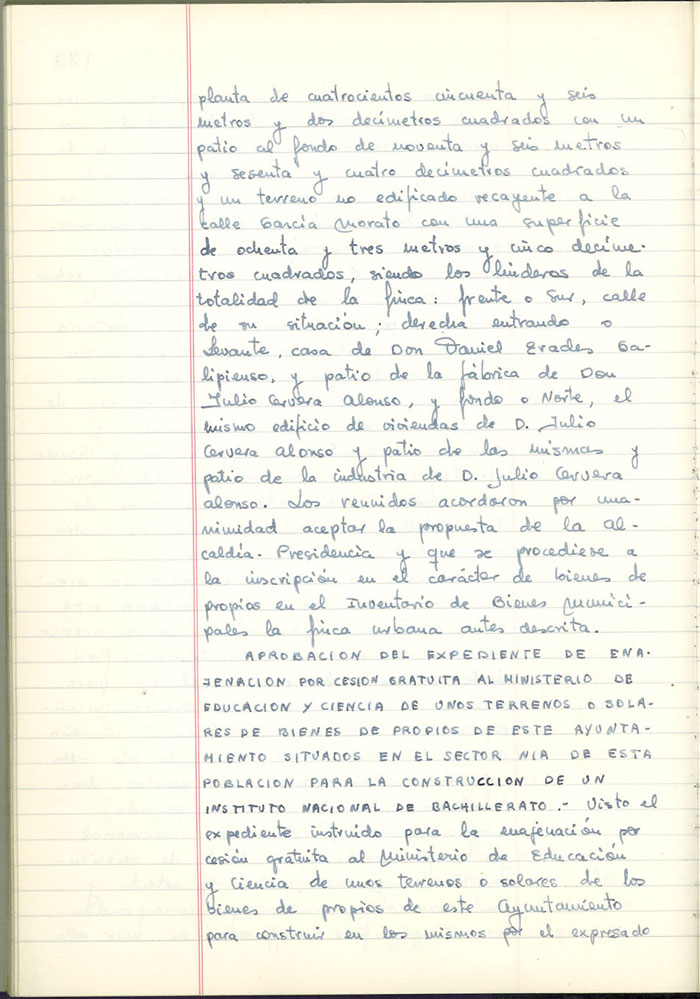 planta de cuatrocientos cincuenta y seis
metros y dos decímetros cuadrados con un
patio al fondo de noventa y seis metros
y sesenta y cuatro decímetros cuadrados
y un terreno no edificado recayente a la
calle García Morato con una superficie
de ochenta y tres metros y cinco decíme-
tros cuadrados, siendo los linderos de la
totalidad de la finca: frente o Sur, calle
de su situación; derecha entrando o
Levante, casa de Don Daniel Erades Ga-
lipienso, y patio de la fábrica de Don
Julio Cervera Alonso, y fondo o Norte, el
mismo edificio de viviendas de D. Julio
Cervera Alonso y patio de las mismas y
patio de la industria de D. Julio Cervera
Alonso. Los reunidos acordaron por una-
nimidad aceptar la propuesta de la Al-
caldía-Presidencia y que se procediese a
la inscripción en el carácter de bienes de
propios en el Inventario de Bienes Munici-
pales la finca urbana antes descrita.
APROBACION DEL EXPEDIENTE DE ENA-
JENACION POR CESION GRATUITA AL MINISTERIO DE
EDUCACION Y CIENCIA DE UNOS TERRENOS O SOLA-
RES DE BIENES DE PROPIOS DE ESTE AYUNTA-
MIENTO SITUADOS EN EL SECTOR NIA DE ESTA
POBLACION PARA LA CONSTRUCCION DE UN
INSTITUTO NACIONAL DE BACHILLERATO.- Visto el
expediente instruido para la enajenación por
cesión gratuita al Ministerio de Educación
y Ciencia de unos terrenos o solares de los
bienes de propios de este Ayuntamiento
para construir en los mismos por el expresado